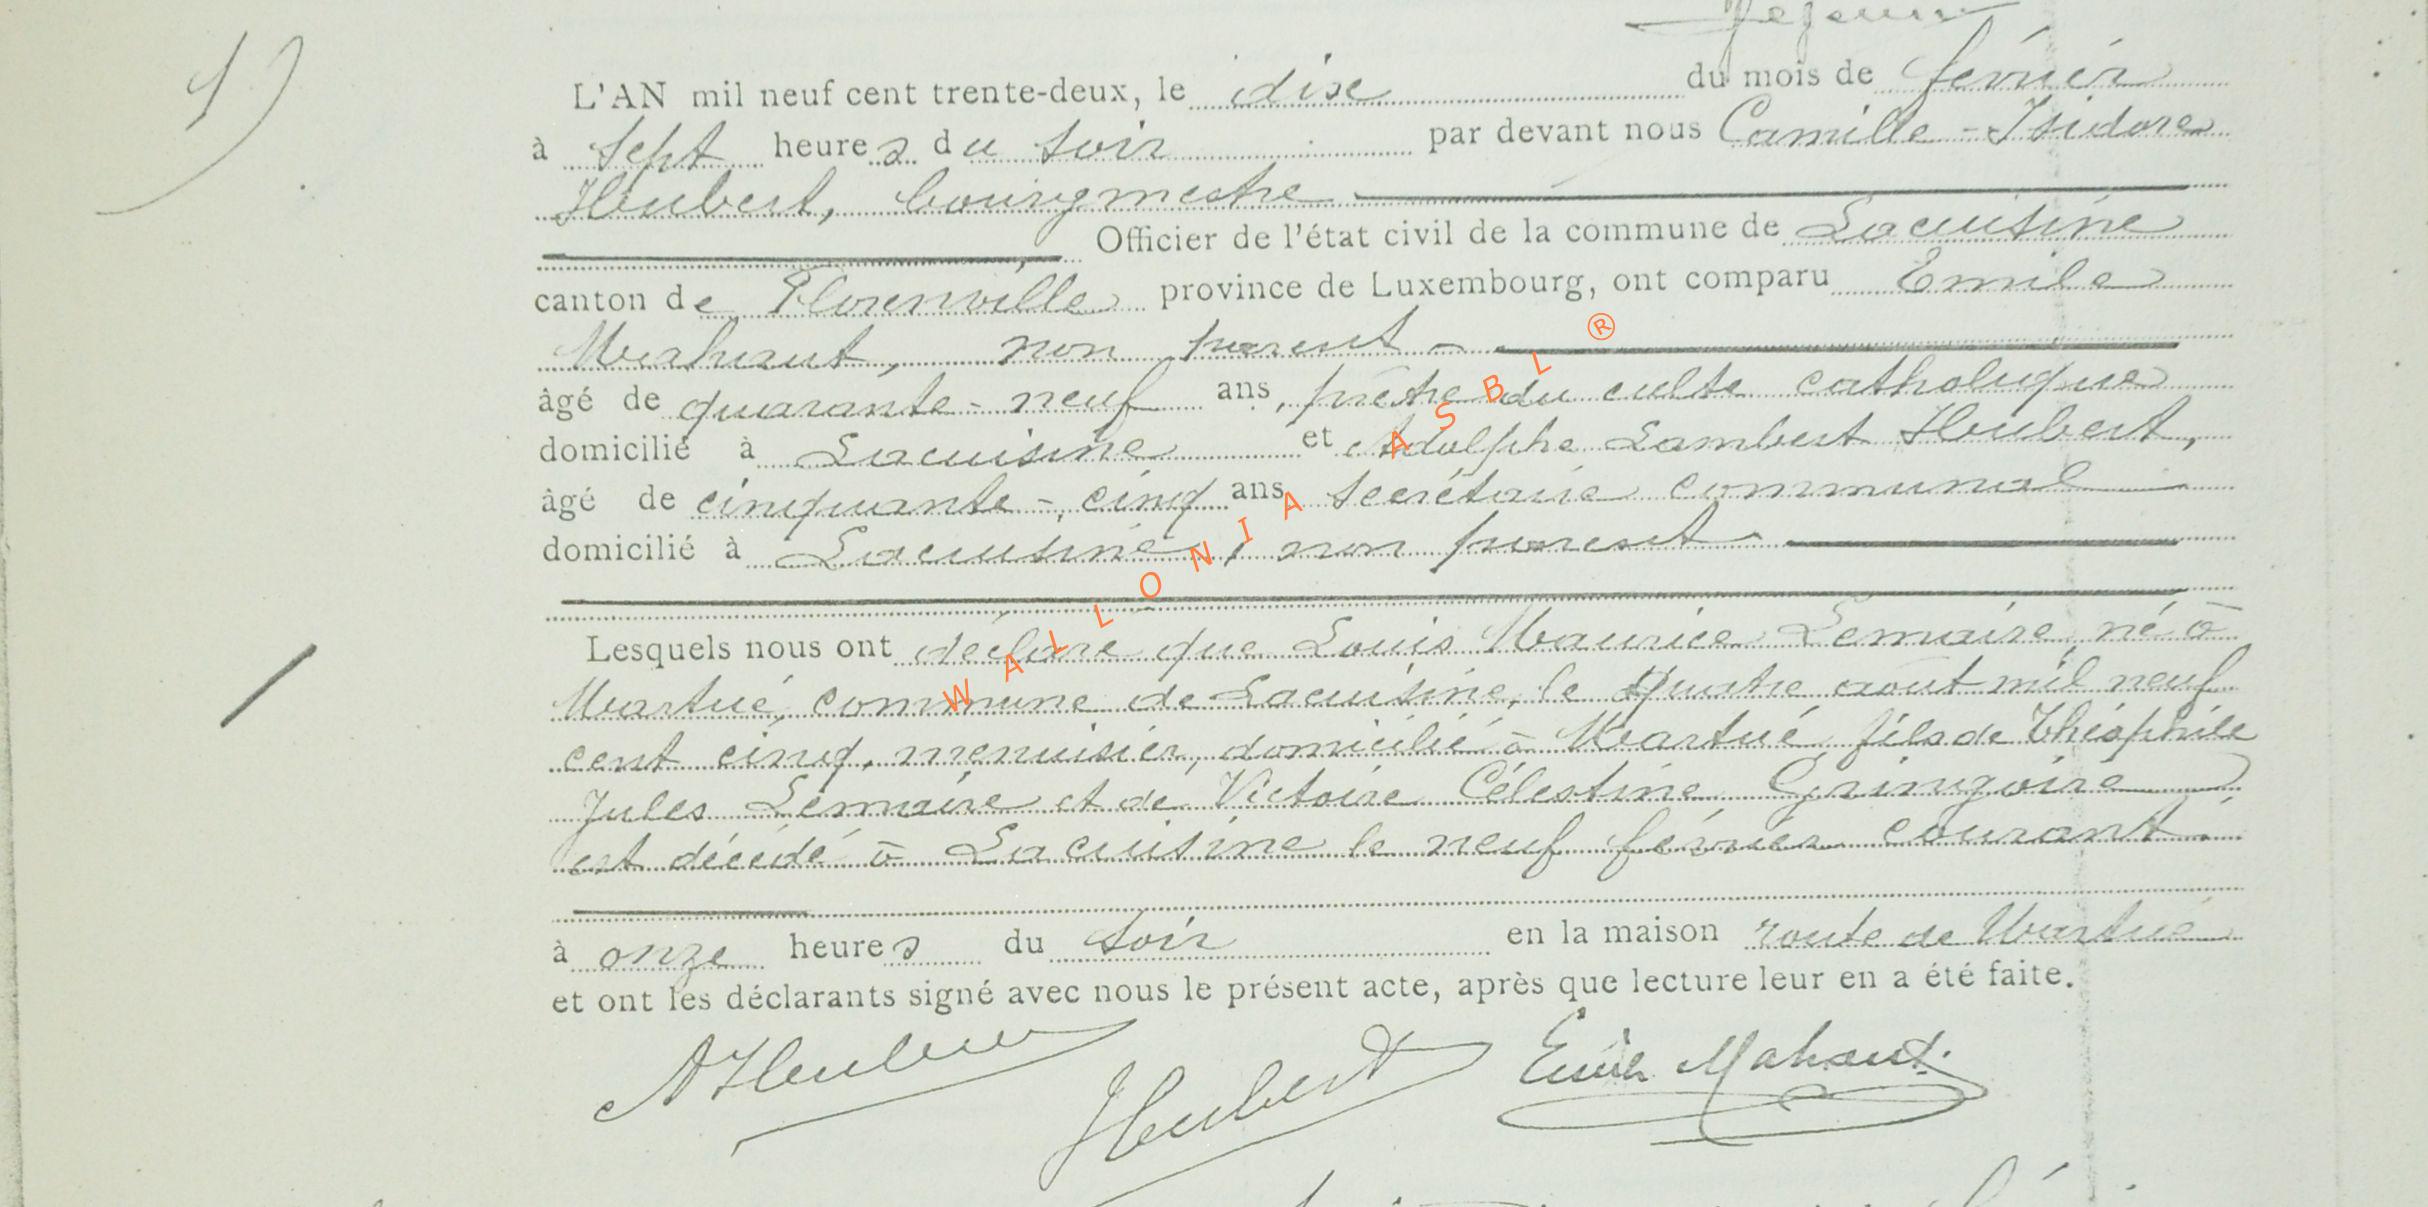 1)
L'AN mil neuf cent trente-deux, le dix du mois de février
à sept heures du soir par devant nous Camille-Isidore
Hubert, bourgmestre
Officier de l'état civil de la commune de Lacuisine
canton de Florenville province de Luxembourg, ont comparu Emile
Mahaut, non parent
âgé de quarante-neuf ans, prêtre du culte catholique
domicilié à Lacuisine et Adolphe Lambert Hubert,
âgé de cinquante-cinq ans secrétaire communal
domicilié à Lacuisine, non parent
Lesquels nous ont déclaré que Louis Maurice Lemaire, né à
Martué, commune de Lacuisine, le quatre août mil neuf
cent cinq, menuisier, domicilié à Martué, fils de Théophile
Jules Lemaire et de Victoire Célestine Gringoire
est décédé à Lacuisine le neuf février courant.
à onze heures du soir en la maison route de Martué
et ont les déclarants signé avec nous le présent acte, après que lecture leur en a été faite.
AHubert Hubert Emile Mahaut.
WALLONIA ASBL ®